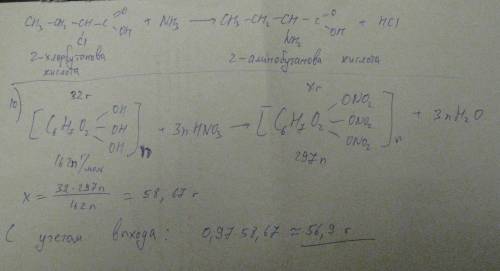 CH₃-CH₂-CH-C=O OH + NH₃ → CH₃-CH₂-CH-C=O OH + HCl
Cl NH₂
2-хлорбутанова кислота 2-аминобутанова кислота
10) 32 г x г
[C₆H₇O₂ OH OH OH]n + 3nHNO₃ → [C₆H₇O₂ ONO₂ ONO₂ ONO₂]n + 3nH₂O
162n г/моль 297n
x = 32·297n / 162n = 58,67 г
С учетом выхода: 0,97·58,67 ≈ 56,9 г